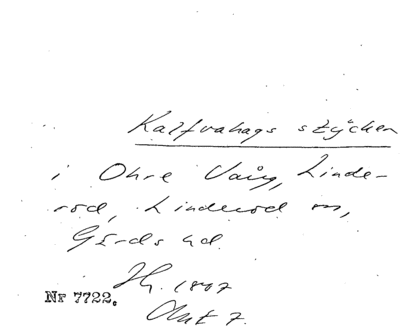 Kalfvahags stycken
i Öhre Vång, Linde-
röd, Linderöd sn,
Gärds hd.
1807
Nr 7722.
Akt 7.